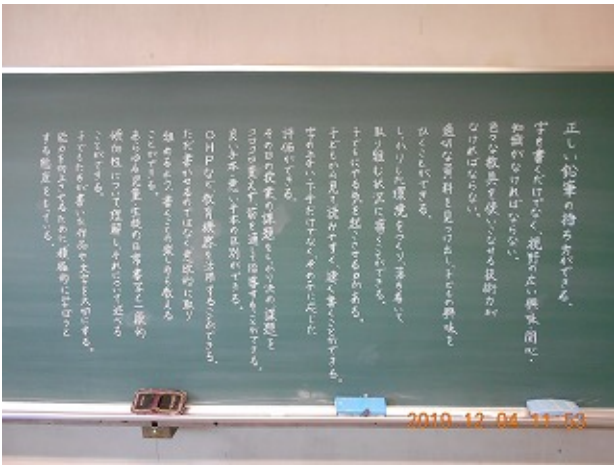 正しい鉛筆の持ち方ができる。
字を書くだけでなく、視野の広い興味・関心・
知識がなければならない。
色々な教具を使いこなせる技術力が
なければならない。
適切な資料を見つけ出し、子どもの興味を
ひくことができる。
しっかりした環境をつくり、落ち着いて
取り組む状況に導くことができる。
子どもにやる気を起こさせる力がある。
子どもから見て読みやすく、速く書くことができる。
字の上手い、下手だけでなくその子に応じた
評価ができる。
その日の授業の課題をしっかり決め課題を
良い手本、悪い手本の区別ができる。
OHPなど、教育機器を活用することができる。
ただ書かせるのではなく意欲的に取り
組めるよう、書くことの楽しさも教える
ことができる。
傾向性について理解し、それについて述べる
ことができる。
子どもたちが書いた作品や文字を大切にする。
能力を向上させるために積極的に学ぼうと
する態度をもっている。
2010 12 04 11:53